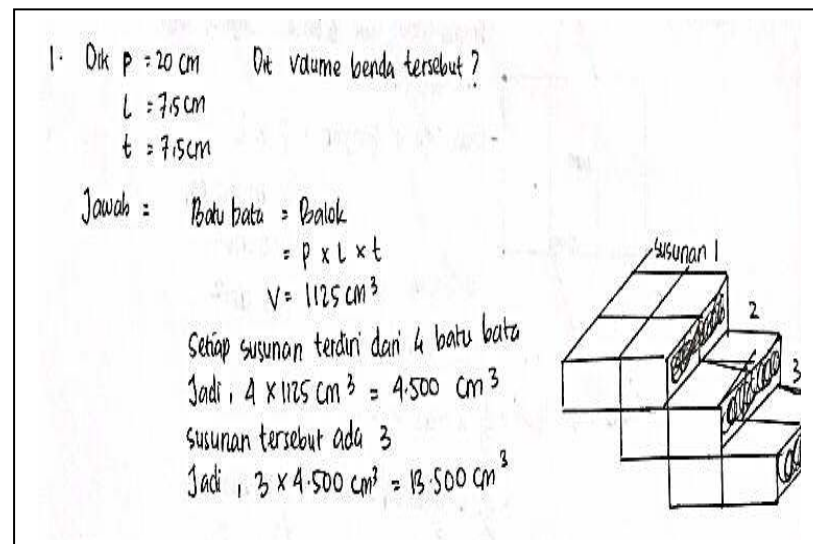 1. Dik p = 20 cm Dit volume benda tersebut ?
l = 7,5 cm
t = 7,5 cm
Jawab = Batu bata = Balok
= p x l x t
V = 1125 cm³
Setiap susunan terdiri dari 4 batu bata
Jadi, 4 x 1125 cm³ = 4.500 cm³
susunan tersebut ada 3
Jadi, 3 x 4.500 cm³ = 13.500 cm³
susunan 1
2
3